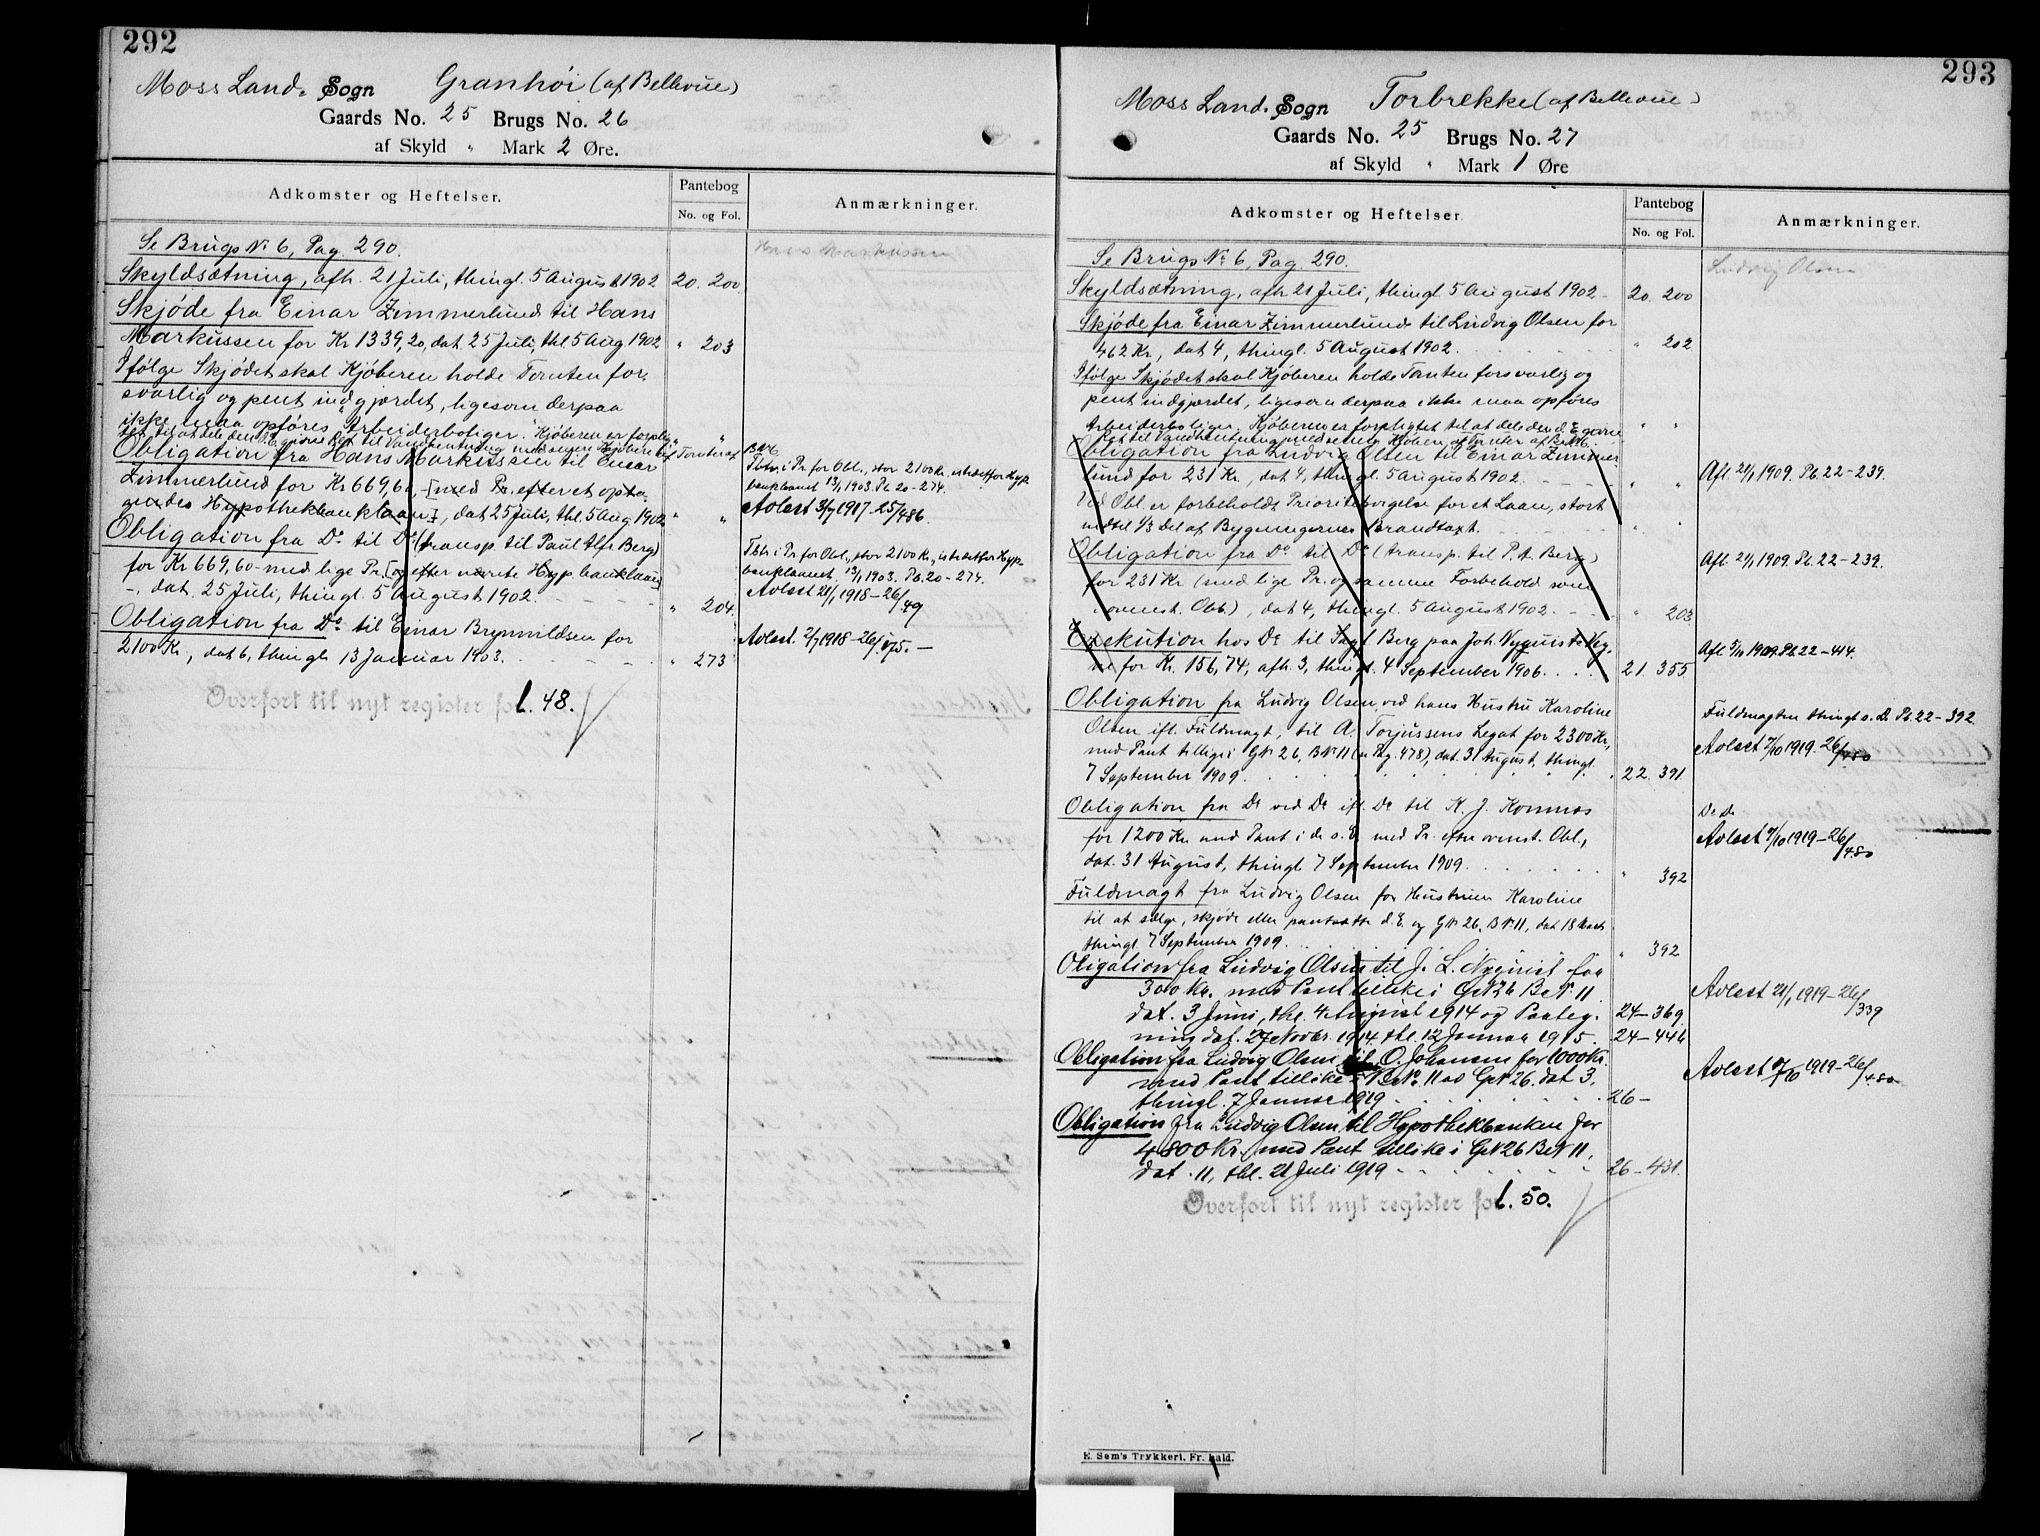 292
Moss Land. Sogn Granhøi (af Bellevue)
Gaards No. 25 Brugs No. 26
af Skyld " Mark 2 Øre.
Adkomster og Heftelser.
Pantebog
No. og Fol.
Anmærkninger.
Se Brugs № 6, Pag. 290.
Hans Markussen
Skyldsætning, afh. 21 Juli, thingl. 5 August 1902 20. 200
Skjøde fra Einar Zimmerlund til Hans
Markussen for Kr 1339,20, dat. 25 Juli, thl. 5 Aug 1902 " 203
Ifølge Skjødet skal Kjøberen holde Tomten for-
svarlig og pent indgjærdet, ligesom derpaa
ikke maa opføres Arbeiderboliger. Kjøberen er forplig-
tet til at dele den
Obligation fra Hans Markussen til Einar
Zimmerlund for Kr 669,60, [med Pr. efter et opta-
gendes Hypothekbanklaan], dat 25 Juli, thl. 5 Aug 1902 " "
Tbtr. i Pr. for Obl., stor 2100 Kr. udstedt for Hyp.
banklaanet 13/1 1903. Pb. 20-274.
Avlest 3/9 1917-25/486.
Obligation fra Do til Do (transp. til Paul Alfr. Berg)
for Kr 669,60 med lige Pr. [og efter nævnte Hyp.banklaan]
-, dat. 25 Juli, thingl. 5 August 1902. " 204.
Tbtr. i Pr. for Obl., stor 2100 Kr., udstedt for Hyp.
banklaanet 13/1 1903. Pb. 20-274.
Avlest 21/1 1918-26/49
Obligation fra Do til Einar Brynildsen for
2100 Kr, dat 6, thingl. 13 Januar 1903. " 273
Avlest. 2/7 1918-26/175.
Overført til nyt register fol. 48.
293
Moss Land. Sogn Torbrekke (af Bellevue)
Gaards No. 25 Brugs No. 27
af Skyld " Mark 1 Øre
Adkomster og Heftelser.
Pantebog
No. og Fol.
Anmærkninger.
Se Brugs № 6, Pag. 290.
Ludvig Olsen
Skyldsætning, afh 21 Juli, thingl. 5 August 1902 20. 200
Skjøde fra Einar Zimmerlund til Ludvig Olsen for
462 Kr, dat 4, thingl. 5 August 1902. " 202
Ifølge Skjødet skal Kjøberen holde Tomten forsvarlig og
pent indgjærdet, ligesom derpaa ikke maa opføres
Arbeiderboliger. Kjøberen er forpligtet til at dele den d. E. givne
Ret til Vandhentning med senere Kjøbere af Tomter af
Obligation fra Ludvig Olsen til Einar Zimmer-
lund for 231 Kr, dat 4, thingl. 5 August 1902. " "
Afl. 21/1 1909. Pb. 22-239.
Ved Obl. er forbeholdt Prioritetsvigelse for et Laan, stort
indtil 1/3 Del af Bygningernes Brandtaxt. " "
Obligation fra Do til Do (transp. til P. A. Berg)
for 231 Kr (med lige Pr. og samme Forbehold som
ovenst. Obl.), dat 4, thingl. 5 August 1902. " 203
Afl. 21/1 1909. Pb. 22-239.
Exekution hos Do til Sagf. Berg paa Joh. Nyquists Veg-
ne for Kr. 156,74, afh. 3, thingl. 4 September 1906. 21. 355
Afl. 5/11 1909. Pb. 22-414.
Obligation fra Ludvig Olsen ved hans Hustru Karoline
Olsen ifl. Fuldmagt, til A. Torjussens Legat for 2300 Kr,
med Pant tillige i G№ 26, B№ 11 (se Pag. 478), dat. 31 August, thingl.
7 September 1909. 22. 391.
Fuldmagten thingl. s. D. Pb. 22-392
Avlest 7/10 1919-26/480
Obligation fra Do ved Do ifl. Do til K. J. Komnæs
for 1200 Kr med Pant i de s. E. med Pr. efter ovenst. Obl.,
dat. 31 August, thingl. 7 September 1909. " 392
Do Do
Avlest 7/10 1919-26/480
Fuldmagt fra Ludvig Olsen for Hustruen Karoline
til at sælge, skjøde eller pantsætte d. E. og G№ 26, B№ 11, dat 18 Marts
thingl. 7 September 1909. " 392
Obligation fra Ludvig Olsen til J. L. Nyquist for
300 Kr. med Pant tillike i G№ 26 B№ 11.
dat. 3 Juni, thl. 4 August 1914 og Paateg- 24-369
ning dat. 27 Novbr. 1914 thl. 12 Januar 1915. 24-446
Avlest 21/1 1919-26/339
Obligation fra Ludvig Olsen til O. Johansen for 1000 Kr.
med Pant tillike i B№ 11 av G№ 26. dat 3,
thingl. 7 Januar 1919 26-
Avlest 7/10 1919-26/480
Obligation fra Ludvig Olsen til Hypothekbanken for
4800 Kr. med Pant tillike i G№ 26 B№ 11,
dat. 11, thl. 21 Juli 1919 26-431.
Overført til nyt register fol. 50.
E. Sem's Trykkeri, Fr.hald.